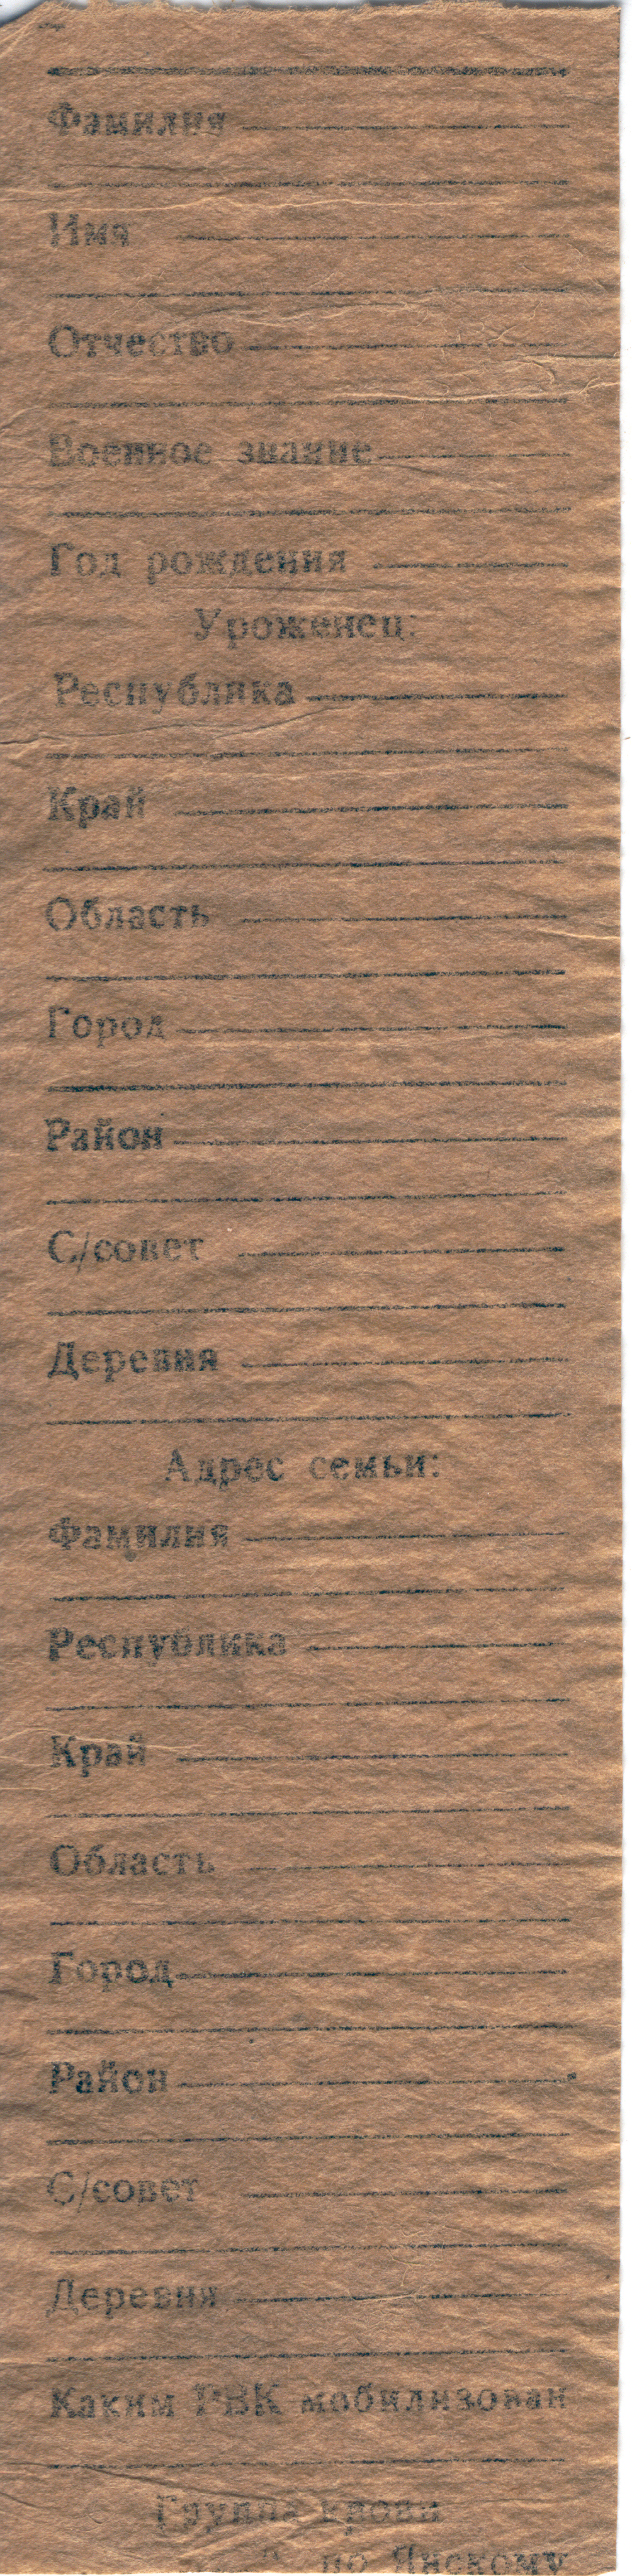 Фамилия
Имя
Отчество
Военное звание
Год рождения
Уроженец:
Республика
Край
Область
Город
Район
С/совет
Деревня
Адрес семьи:
Фамилия
Республика
Край
Область
Город
Район
С/совет
Деревня
Каким РВК мобилизован
Группа крови
по Янскому